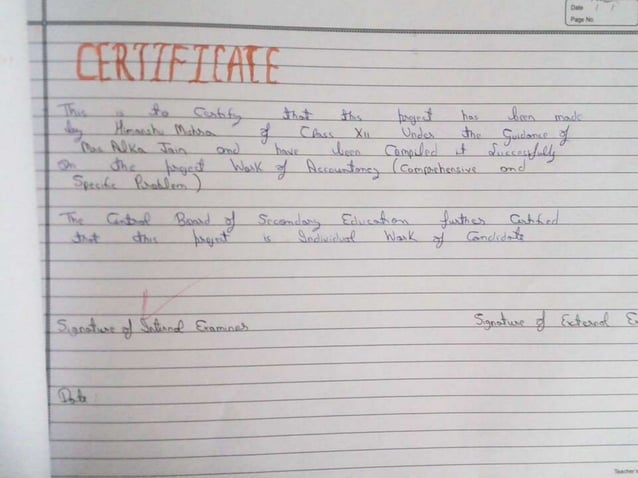 Date / /
Page No.
CERTIFICATE
This is to Certify that this project has been made
by Himanshu Mishra of Class XII Under the Guidance of
Mrs Alka Jain and have been Compiled it Successfully
on the project Work of Accountancy (Comprehensive and
Specific Problem)
The Central Board of Secondary Education further Certified
that this project is Individual Work of Candidate
Signature of Internal Examiner Signature of External E
Date :
Teacher's